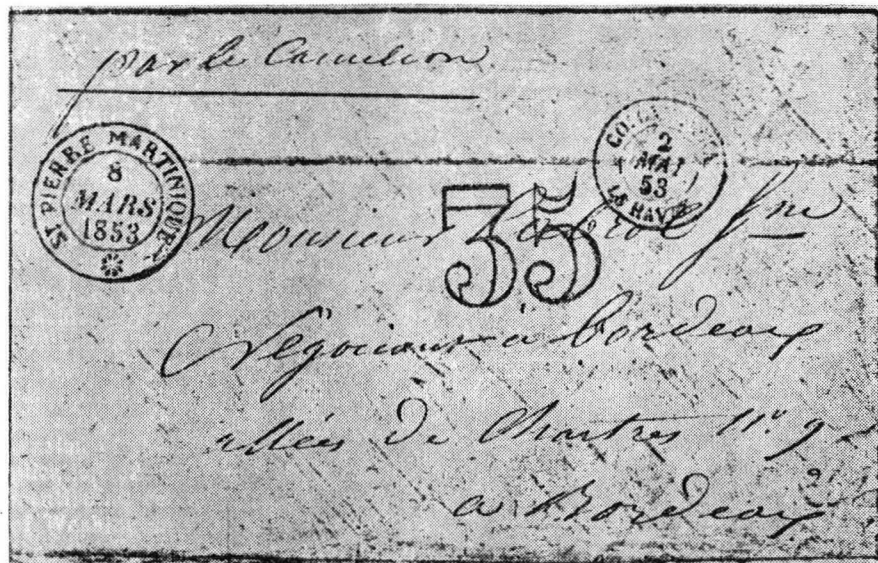 par le Camelion
ST PIERRE MARTINIQUE
8
MARS
1853
2
MAI
53
LE HAVRE
35
Monsieur Jne
Négociant à bordeaux
allées de Chartres No 9
a Bordeaux